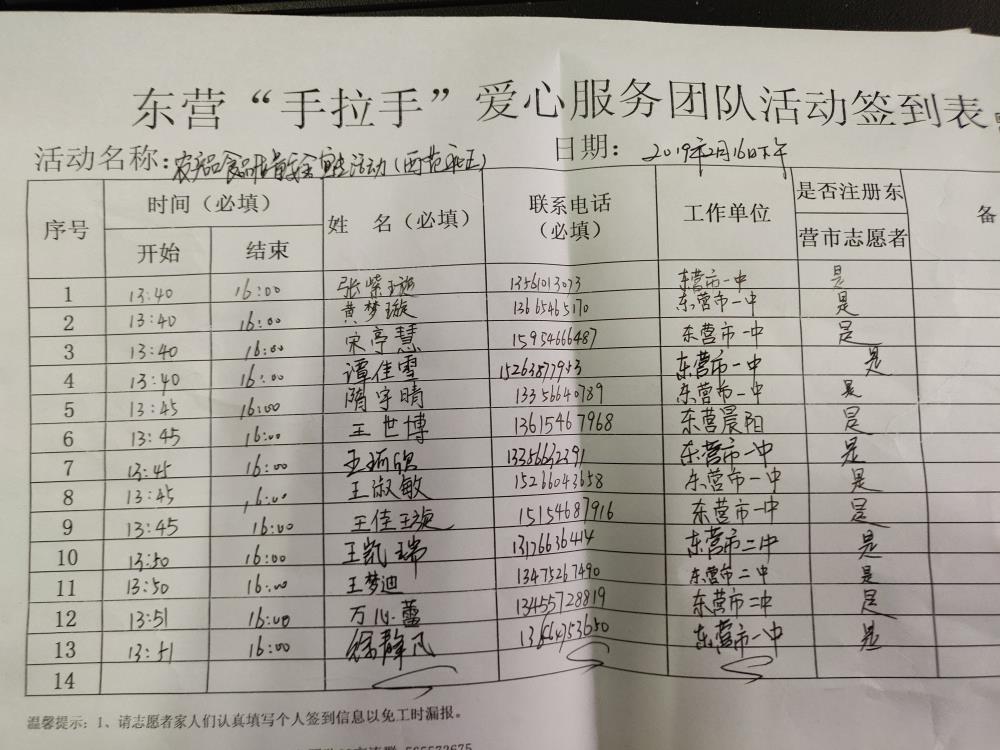 东营“手拉手”爱心服务团队活动签到表
活动名称: 活动 日期: 2019年2月16日下午
序号 时间（必填） 姓 名（必填） 联系电话（必填） 工作单位 是否注册东营市志愿者 备
开始 结束
1 13:40 16:00 张紫璇 13561013073 东营市一中 是
2 13:40 16:00 黄梦璇 13665465170 东营市一中 是
3 13:40 16:00 宋亭慧 15954666487 东营市一中 是
4 13:40 16:00 谭佳雪 15263877953 东营市一中 是
5 13:45 16:00 隋宇晴 13356640789 东营市一中 是
6 13:45 16:00 王世博 13615467968 东营晨阳 是
7 13:45 16:00 13356632291 东营市一中 是
8 13:45 16:00 王淑敏 15266043658 东营市一中 是
9 13:45 16:00 王佳璇 15154687916 东营市一中 是
10 13:50 16:00 王凯瑞 13176636414 东营市二中 是
11 13:50 16:00 王梦迪 13475267490 东营市二中 是
12 13:51 16:00 万心蕾 13455728819 东营市二中 是
13 13:51 16:00 徐静凡 东营市一中 是
14
温馨提示：1、请志愿者家人们认真填写个人签到信息以免工时漏报。